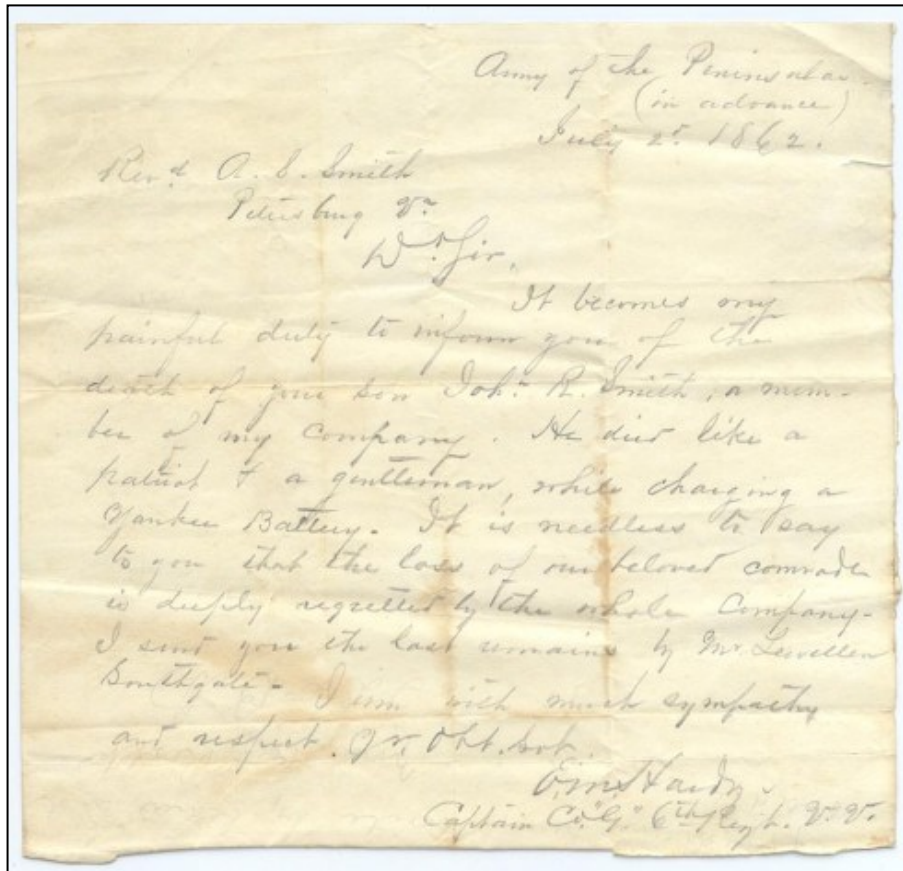 Army of the Peninsular
(in advance)
July 2d. 1862.
Revd A. E. Smith
Petersburg Va
Dr Sir,
It becomes my
painful duty to inform you of the
death of your son John. R. Smith, a mem-
ber of my company. He died like a
patriot & a gentleman, while charging a
Yankee Battery. It is needless to say
to you that the loss of our beloved comrade
is deeply regretted by the whole Company-
I send you the last remains by Mr. Lewellen
Southgate- I am with much sympathy
and respect. Yr. Obt. Svt.
E. M. Hardy.
Captain Co. "G" 6th Regt. V. V.